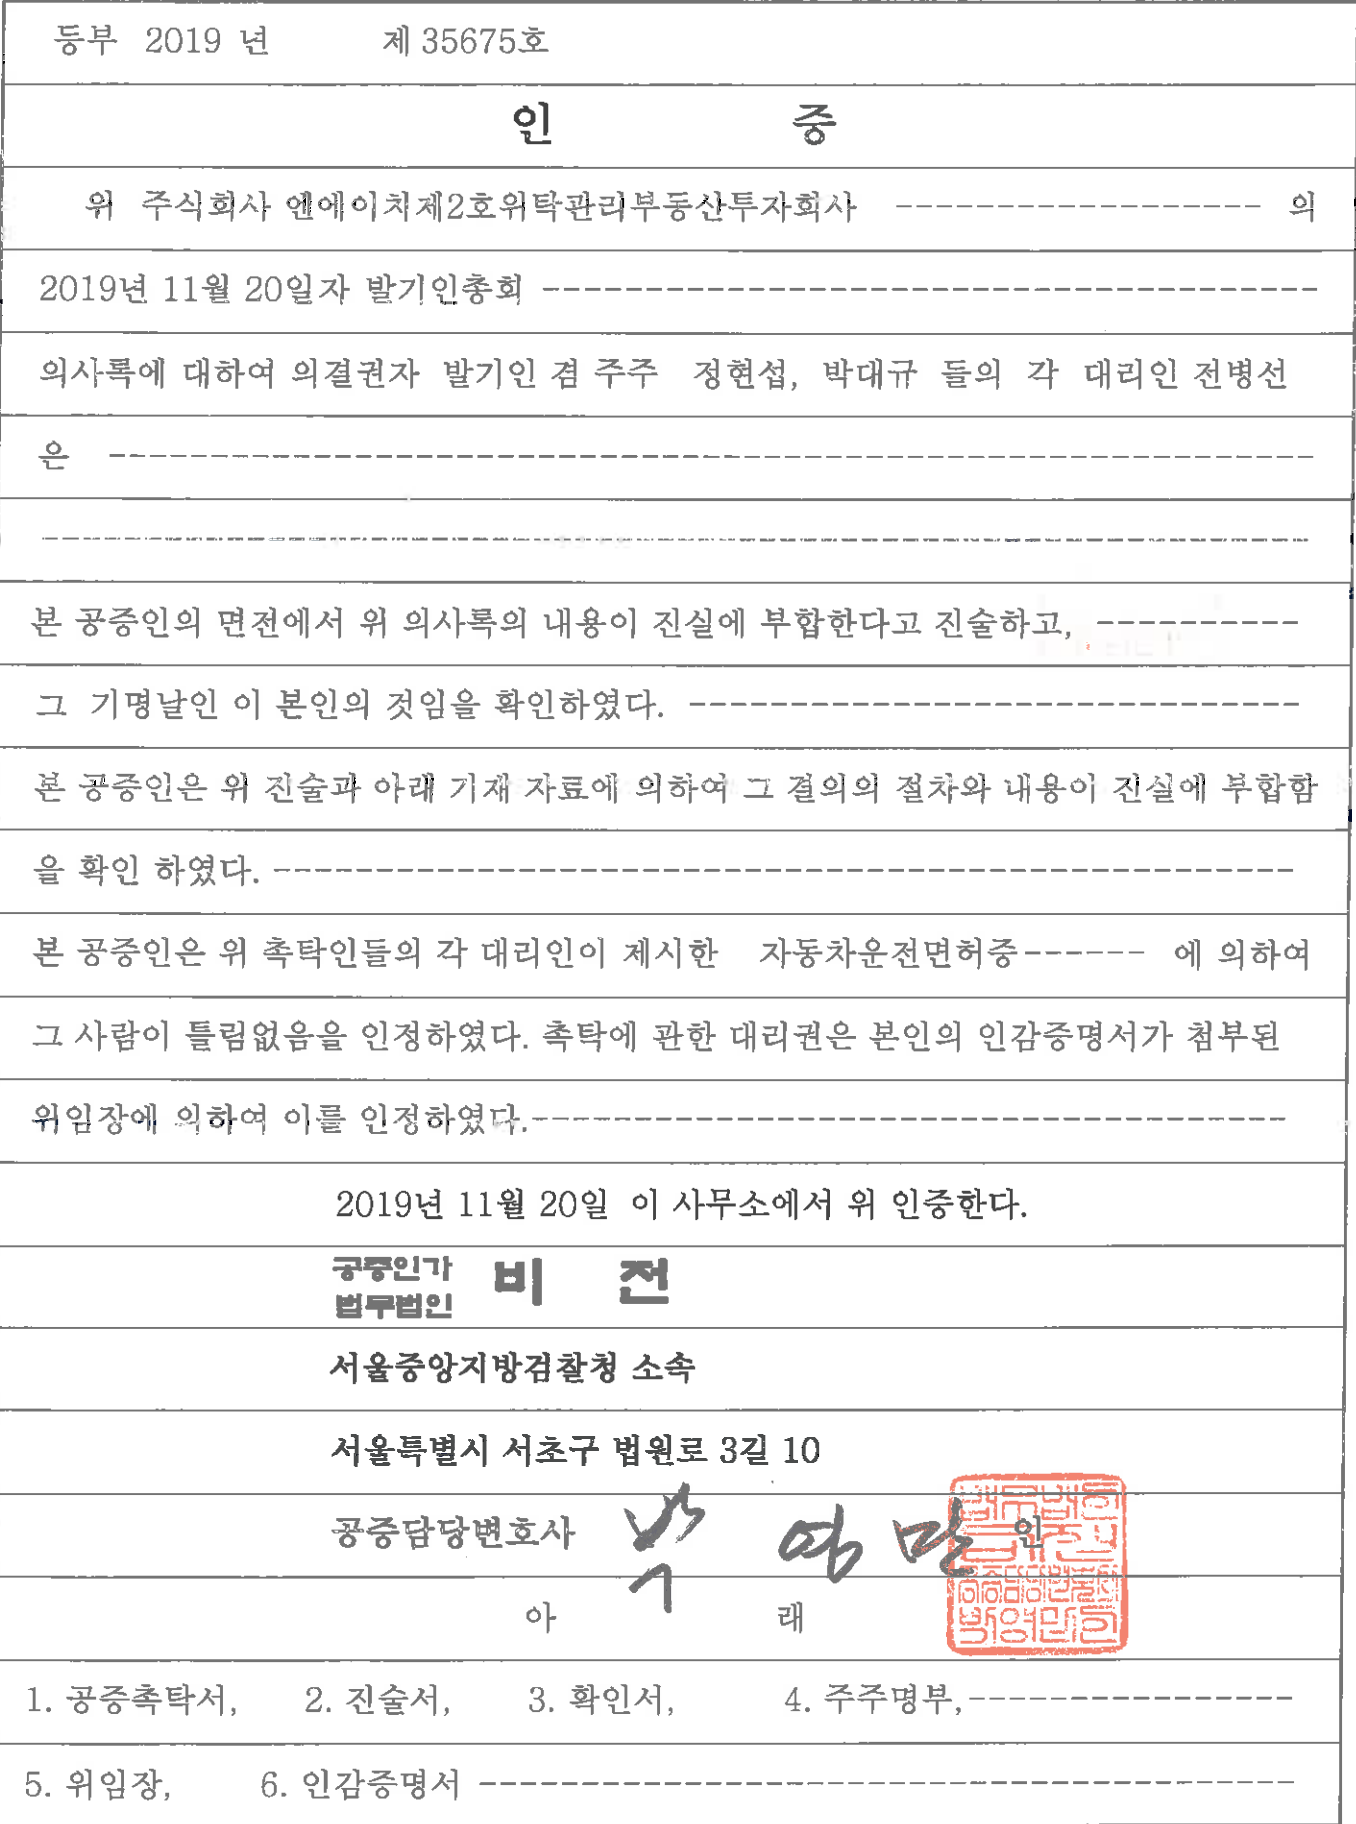 등부 2019 년 제 35675호
인 증
위 주식회사 엔에이치제2호위탁관리부동산투자회사 ------------------- 의
2019년 11월 20일자 발기인총회 ---------------------------------------
의사록에 대하여 의결권자 발기인 겸 주주 정현섭, 박대규 들의 각 대리인 전병선
은 ------------------------------------------------------------
---------------------------------------------------------------
본 공증인의 면전에서 위 의사록의 내용이 진실에 부합한다고 진술하고, ----------
그 기명날인 이 본인의 것임을 확인하였다. ------------------------------
본 공증인은 위 진술과 아래 기재 자료에 의하여 그 결의의 절차와 내용이 진실에 부합함
을 확인 하였다. ---------------------------------------------------
본 공증인은 위 촉탁인들의 각 대리인이 제시한 자동차운전면허증------ 에 의하여
그 사람이 틀림없음을 인정하였다. 촉탁에 관한 대리권은 본인의 인감증명서가 첨부된
위임장에 의하여 이를 인정하였다.-------------------------------------
2019년 11월 20일 이 사무소에서 위 인증한다.
공증인가 법무법인 비 전
서울중앙지방검찰청 소속
서울특별시 서초구 법원로 3길 10
공증담당변호사 박 영 만 인
아 래
1. 공증촉탁서, 2. 진술서, 3. 확인서, 4. 주주명부,----------------
5. 위임장, 6. 인감증명서 ----------------------------------------